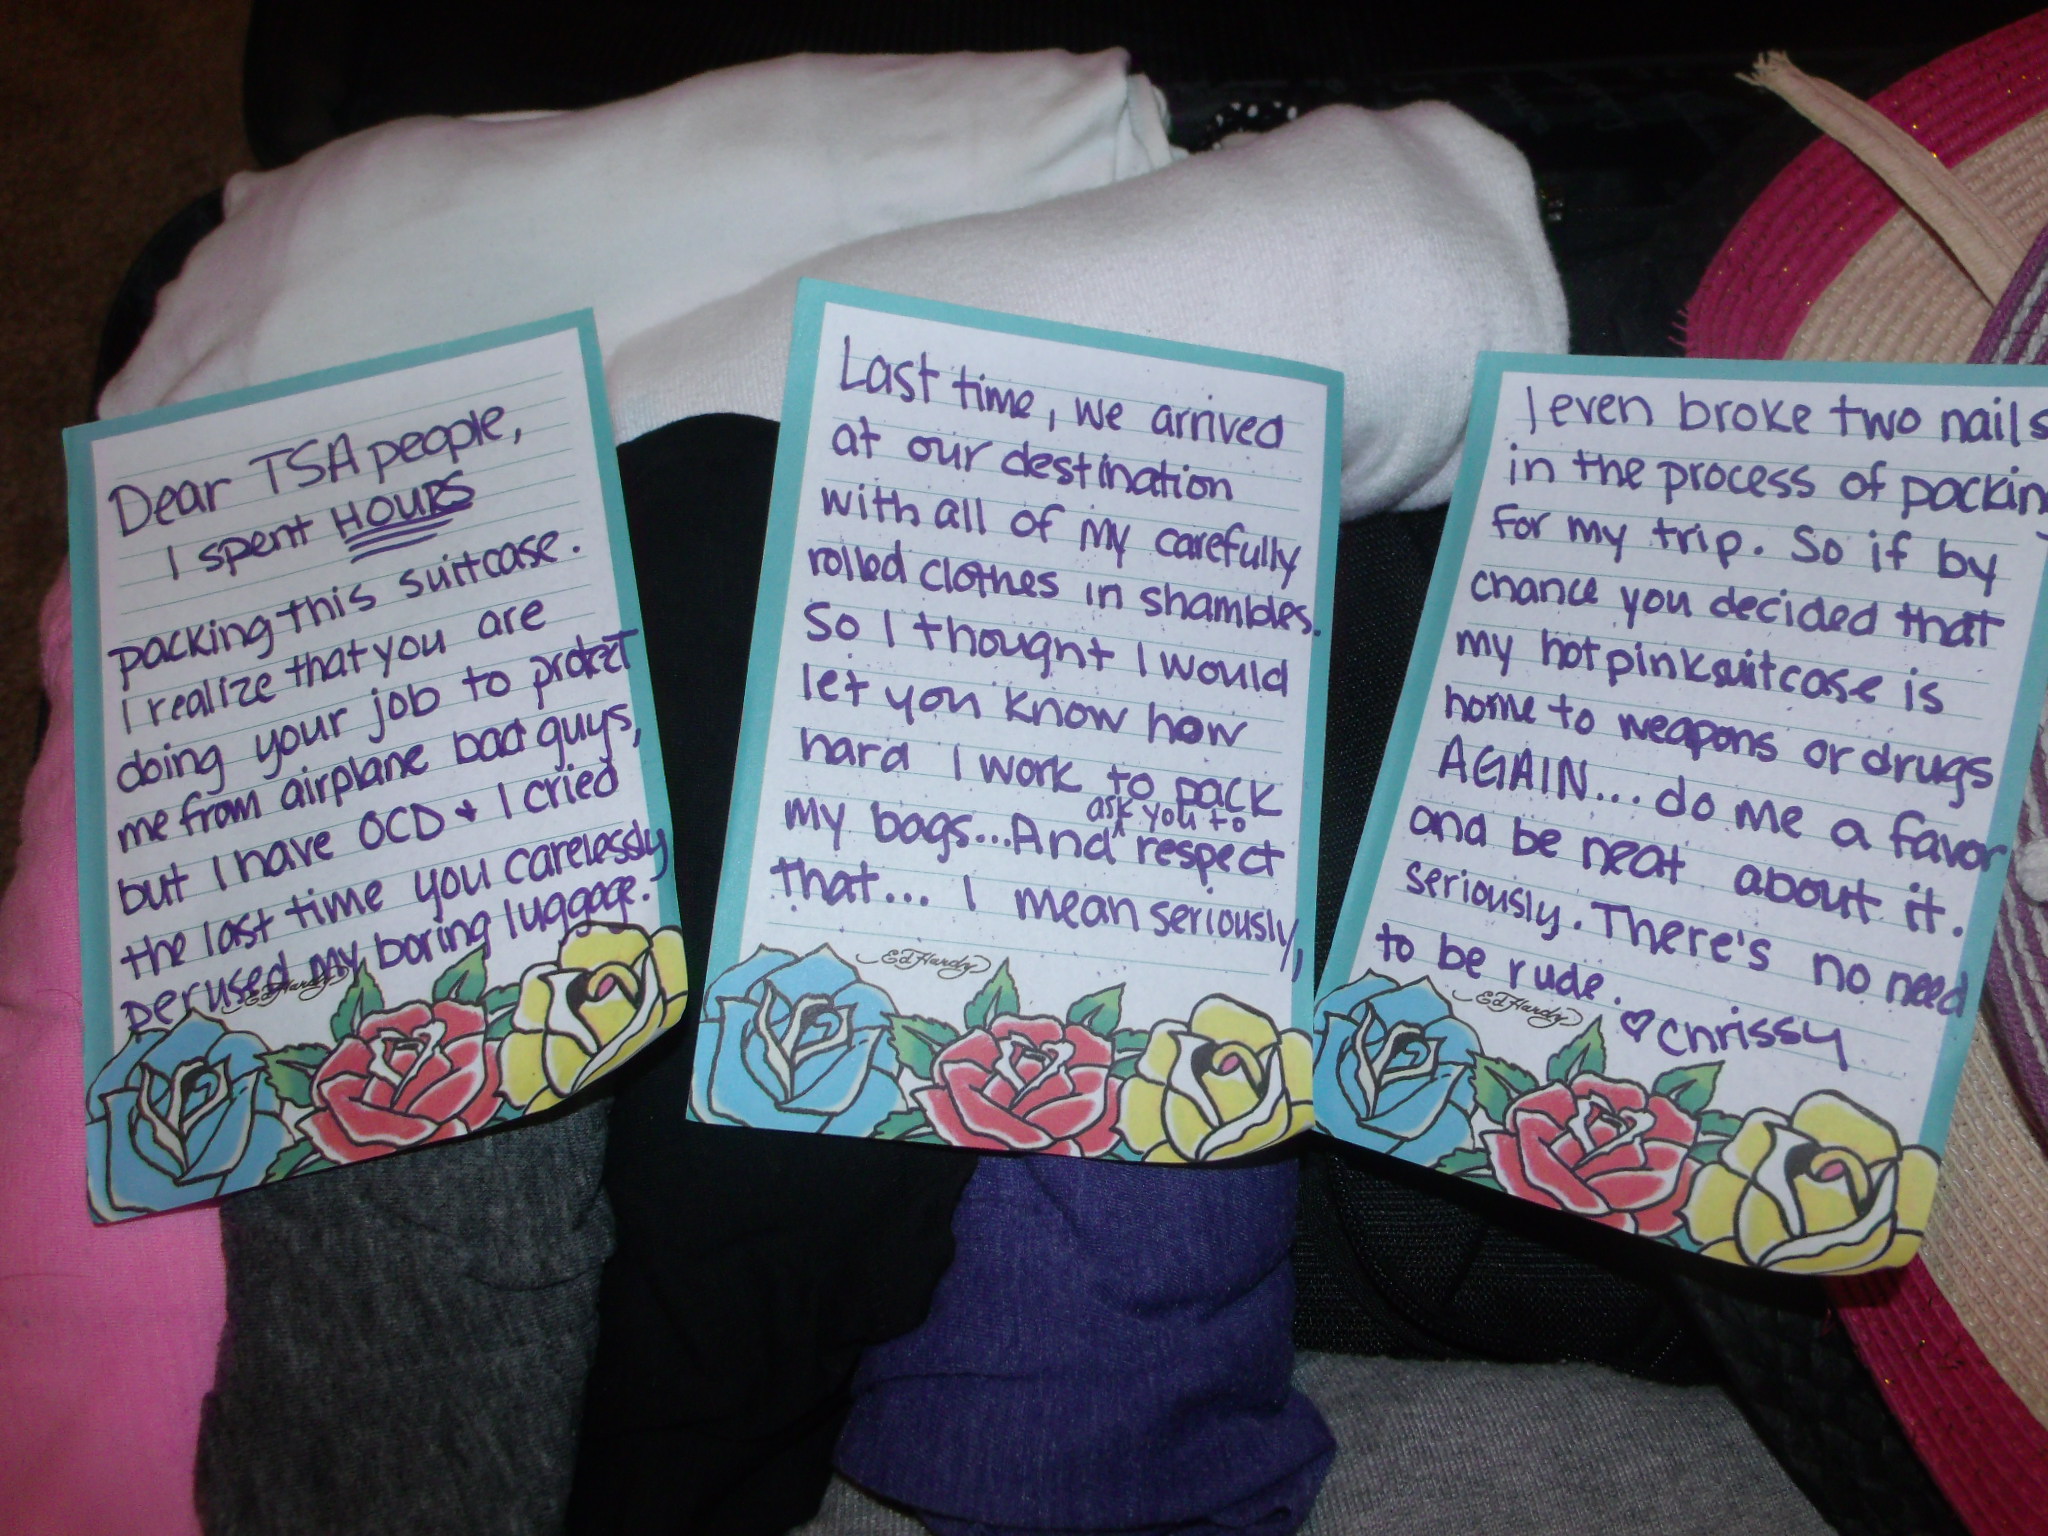 Dear TSA people,
I spent HOURS
packing this suitcase.
I realize that you are
doing your job to protect
me from airplane bad guys,
but I have OCD + I cried
the last time you carelessly
perused my boring luggage.
Ed Hardy
Last time, we arrived
at our destination
with all of my carefully
rolled clothes in shambles.
So I thought I would
let you know how
hard I work to pack
ask you to
my bags...And ^ respect
that... I mean seriously,
Ed Hardy
I even broke two nails
in the process of packing
for my trip. So if by
chance you decided that
my hot pink suitcase is
home to weapons or drugs
AGAIN... do me a favor
and be neat about it.
seriously. There's no need
to be rude.
♡ Chrissy
Ed Hardy